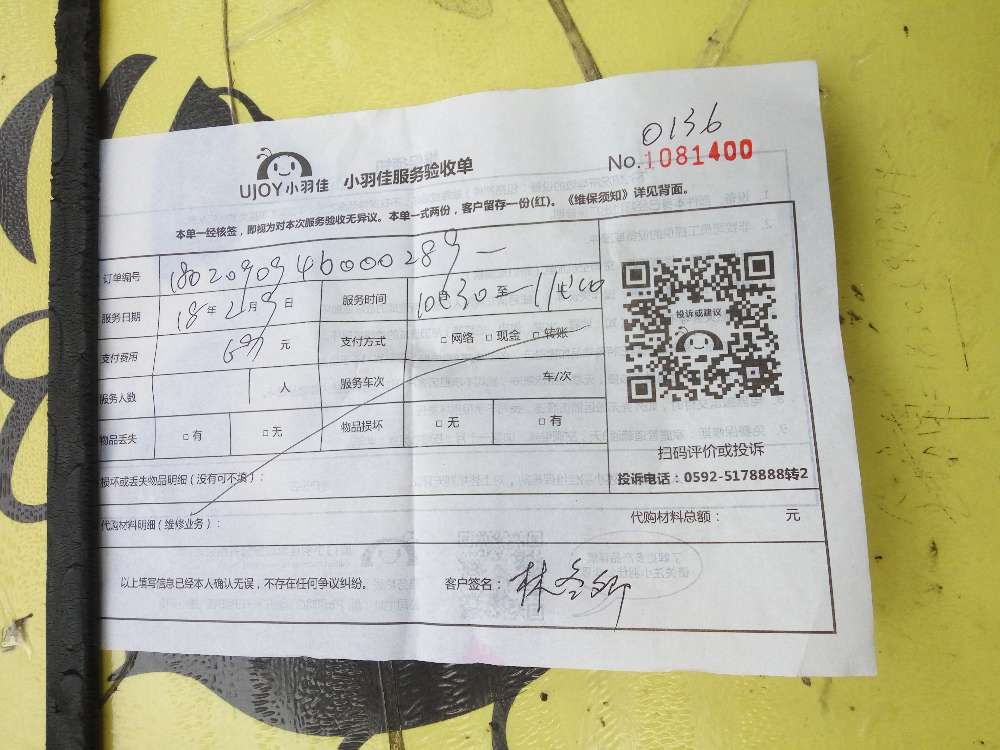 0136
No.1081400
UJOY小羽佳 小羽佳服务验收单
本单一经核签，即视为对本次服务验收无异议。本单一式两份，客户留存一份(红)。《维保须知》详见背面。
订单编号
服务日期 18 年 2 月 9 日 服务时间 10 30 至 11
支付费用 元 支付方式 □ 网络 □ 现金 □ 转账
服务人数 人 服务车次 车/次
物品丢失 □ 有 □ 无 物品损坏 □ 无 □ 有
损坏或丢失物品明细（没有可不填）：
代购材料明细（维修业务）： 代购材料总额： 元
以上填写信息已经本人确认无误，不存在任何争议纠纷。 客户签名：
投诉或建议
扫码评价或投诉
投诉电话：0592-5178888转2